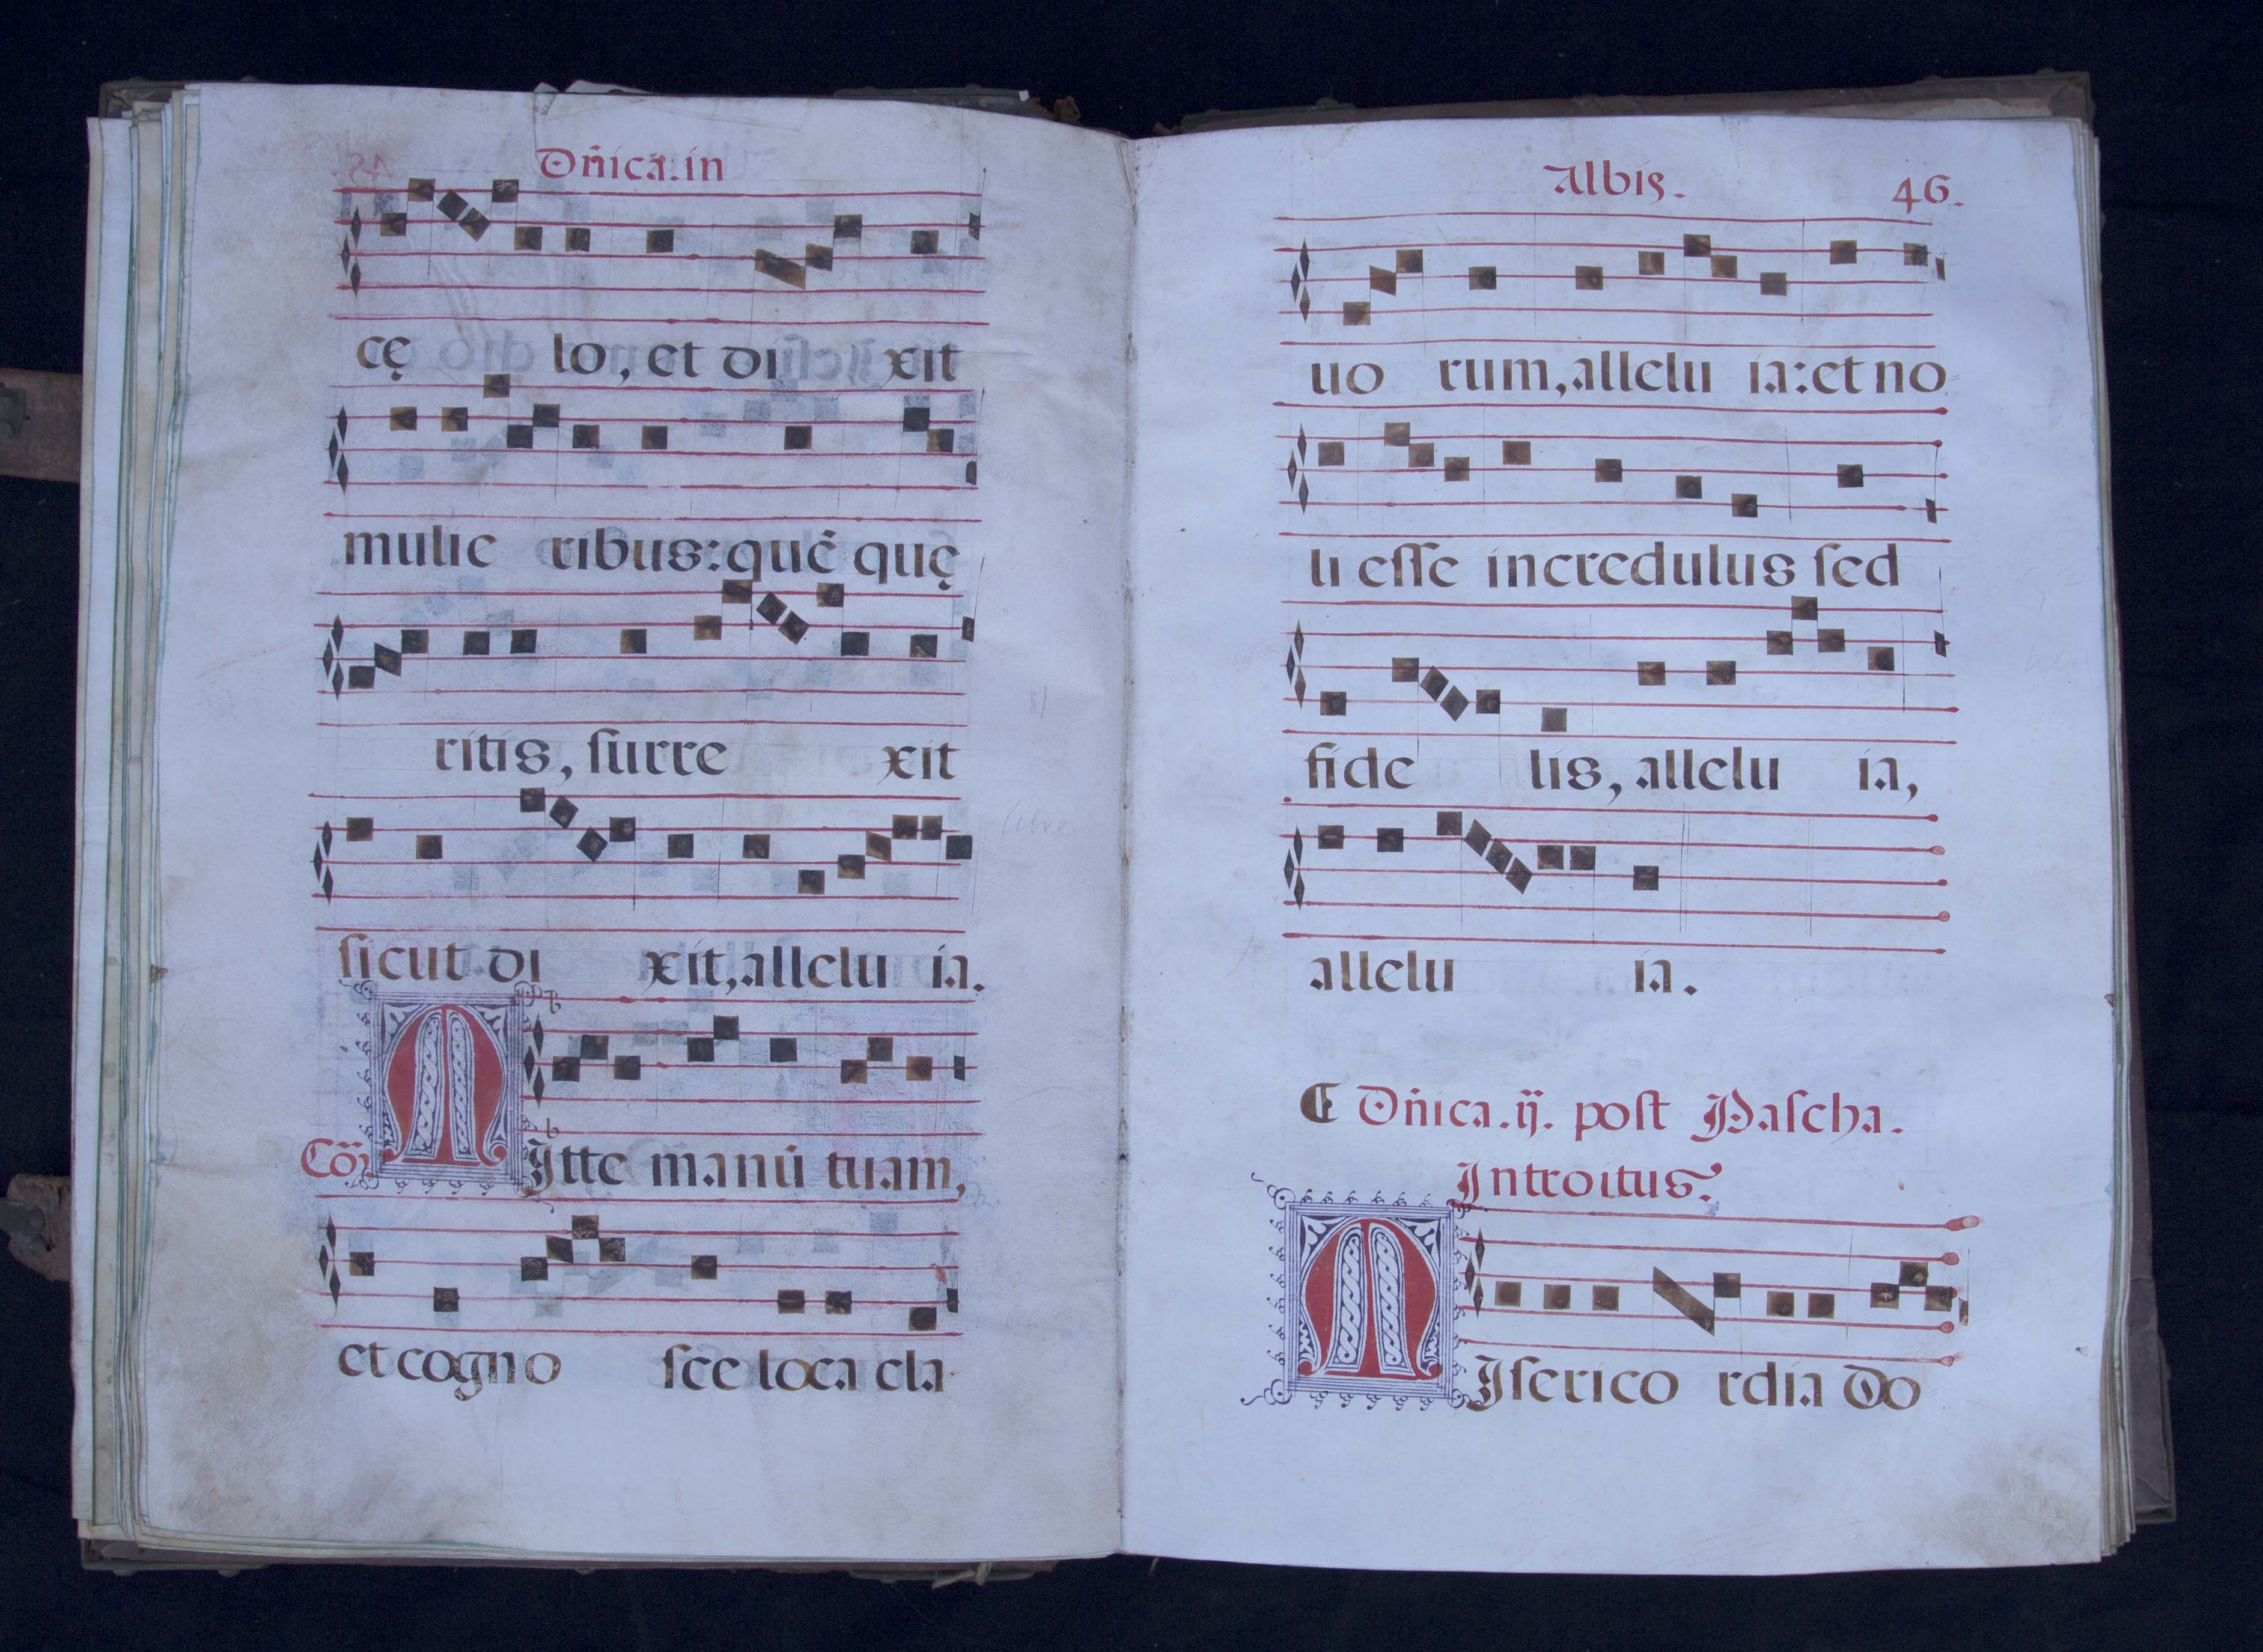 Dn̄ica. in
cę lo, et di xit
mulie ribus: quē quę
ritis, ſurre xit
ſicut di xit, allelu ia.
Cōi MItte manū tuam,
et cogno ſce loca cla
Albis. 46.
uo rum, allelu ia: et no
li eſſe incredulus ſed
fide lis, allelu ia,
allelu ia.
Dn̄ica. ij. poſt Paſcha.
Introitus.
MIſerico rdia Do